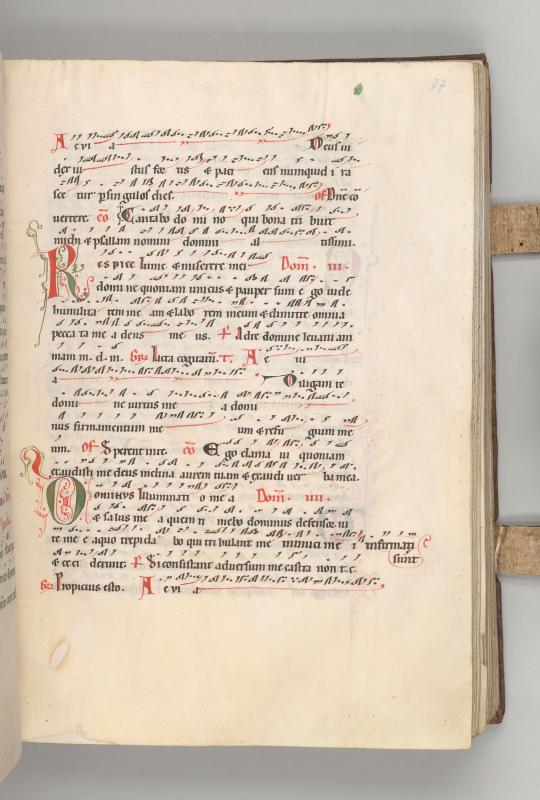 77
A e vi a Deus iu
dex iu stus for tis & paci ens numquid i ra
sce tur p singulos dies. of Dne co
vertere. co Cantabo do mi no qui bona tri buit
michi & psallam nomini domini al tissimi.
Respice in me & miserere mei Dom. iii.
domi ne quoniam unicus & pauper sum e go vide
humilita tem me am & labo rem meum & dimitte omnia
pecca ta me a deus me us. Ad te domine levavi am
mam m. d. m. Iacta cogitatu. A e ui
a Diligam te
domi ne virtus me a domi
nus firmamentum me um & refu gium me
um. of Sperent in te. co Ego clama ui quoniam
exaudisti me deus inclina aurem tuam & exaudi ver ba mea.
Dominus Illuminati o me a Dom. iiii.
& salus me a quem ti mebo dominus defensor ui
te me e a quo trepida bo qui tribulant me inimici me i infirmati
sunt
& ce ci derunt. Si consistant adversum me castra non t. c.
Propicius esto. A e vi a